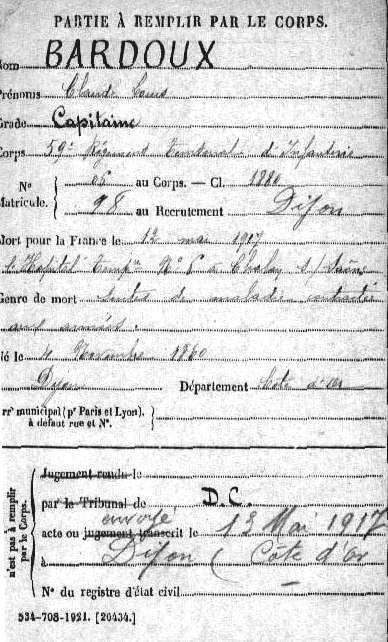 PARTIE À REMPLIR PAR LE CORPS.
Nom BARDOUX
Prénoms Claude Louis
Grade Capitaine
Corps 59e Régiment Territorial d'Infanterie
N° 06 au Corps. — Cl. 1880
Matricule. 98 au Recrutement Dijon
Mort pour la France le 12 mai 1917
à l'Hopital Temp N° 6 à Chalon s/ Saône
Genre de mort suites de maladie contractée
aux armées.
Né le 4 Novembre 1860
Dijon Département Côte d'Or
arrt municipal (pr Paris et Lyon).
à défaut rue et N°.
n'est pas à remplir
par le Corps.
Jugement rendu le
par le Tribunal de D.C.
envoyé
acte ou jugement transcrit le 13 Mai 1917
à Dijon (Côte d'Or
N° du registre d'état civil
534-708-1921. [26434.]